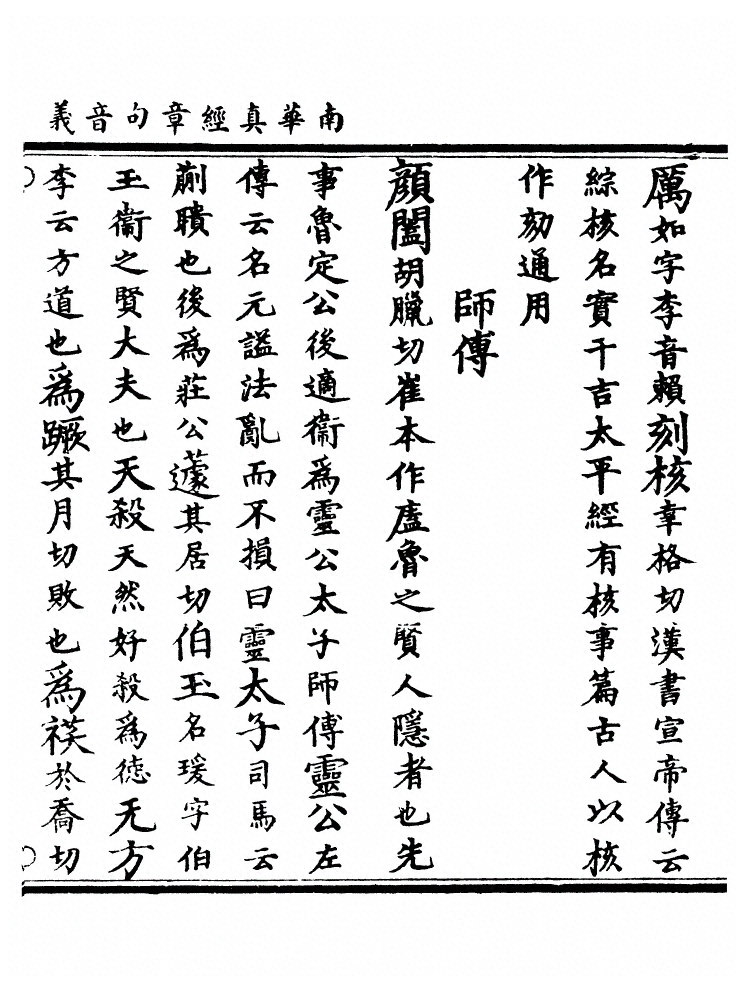 南華真經章句音義
厲如字李音賴刻核幸格切漢書宣帝傳云
綜核名實干吉太平經有核事篇古人以核
作刻通用
師傅
顔闔胡臘切崔本作廬魯之賢人隱者也先
事魯定公後適衞爲靈公太子師傅靈公左
傳云名元謚法亂而不損曰靈太子司馬云
蒯聵也後爲莊公蘧其居切伯玉名瑗字伯
玉衞之賢大夫也天殺天然好殺爲德无方
李云方道也爲蹶其月切敗也爲祅於喬切